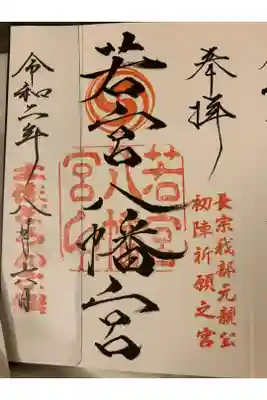 奉拝
長宗我部元親公
初陣祈願之宮
若宮八幡宮
若宮
八幡
宮印
令和二年